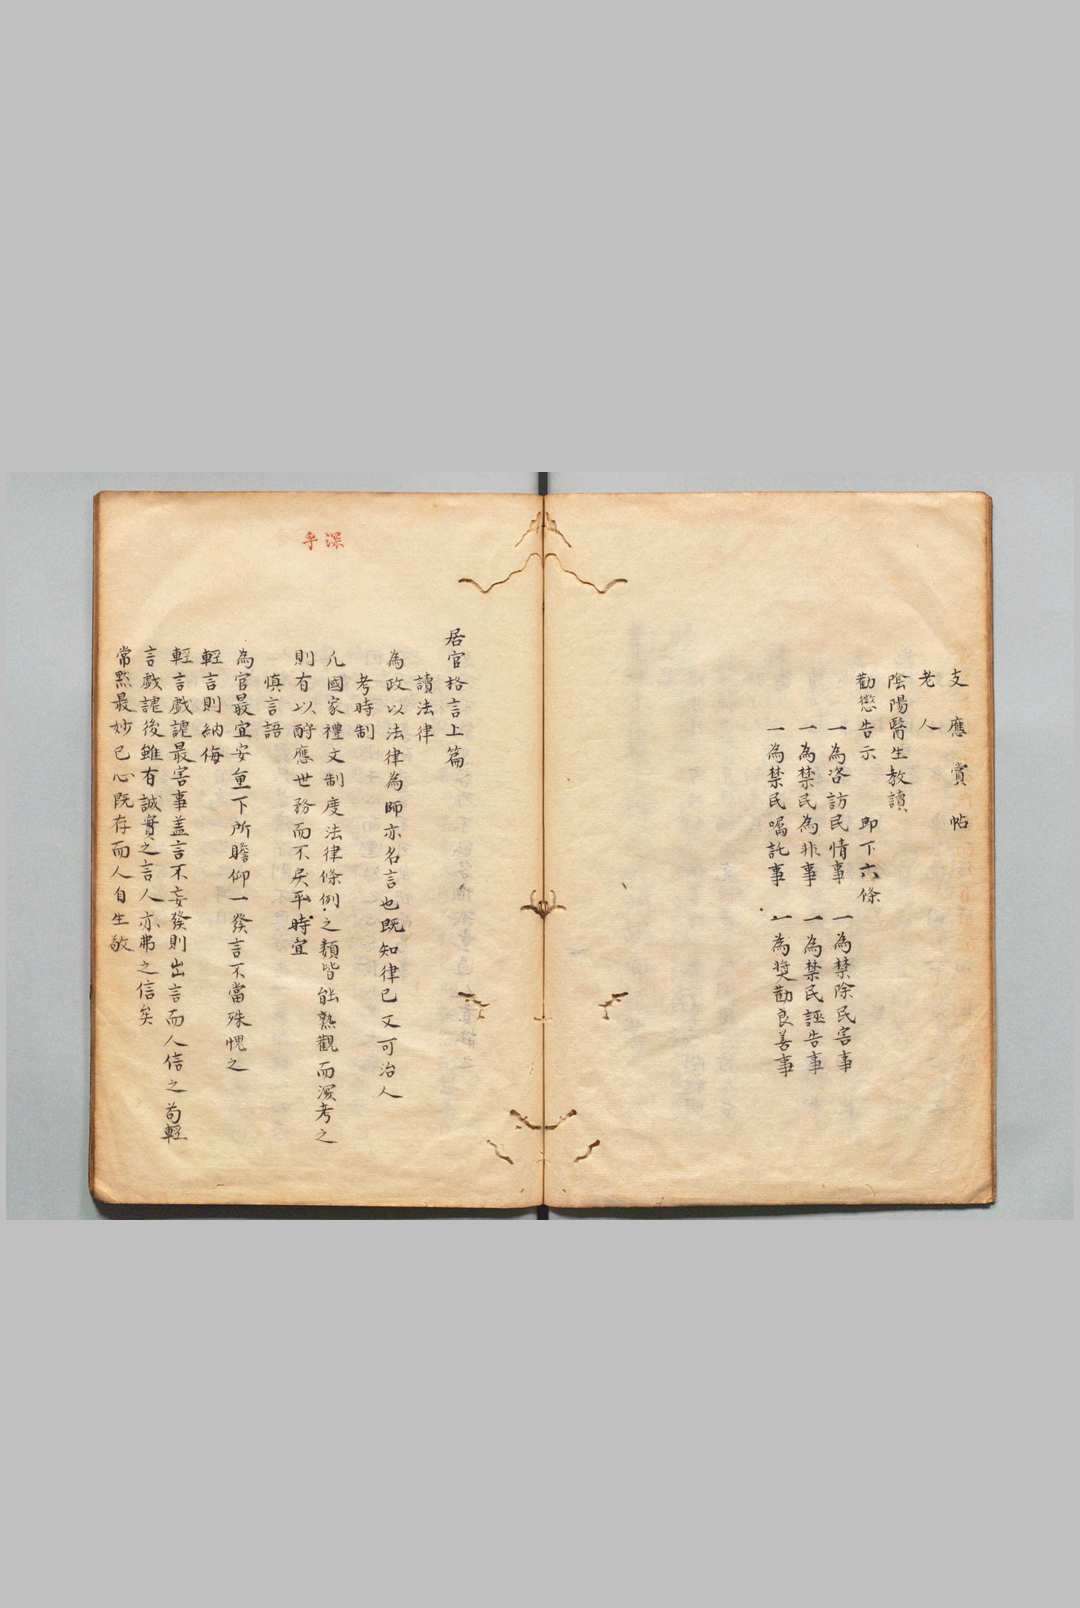 支應賞帖
老人
陰陽醫生教讀
勸懲告示 即下六條
一為咨訪民情事 一為禁除民害事
一為禁民為非事 一為禁民誣告事
一為禁民囑託事 一為奬勸良善事
居官格言上篇
讀法律
為政以法律為師亦名言也既知律已又可治人
考時制
凡國家禮文制度法律條例之類皆能熟觀而深考之
則有以酧應世務而不戾乎時宜
慎言語
為官最宜安重下所瞻仰一發言不當殊愧之
輕言則納侮
輕言戲謔最害事盖言不妄發則出言而人信之苟輕
言戲謔後雖有誠實之言人亦弗之信矣
常黙最妙已心既存而人自生敬
深
乎